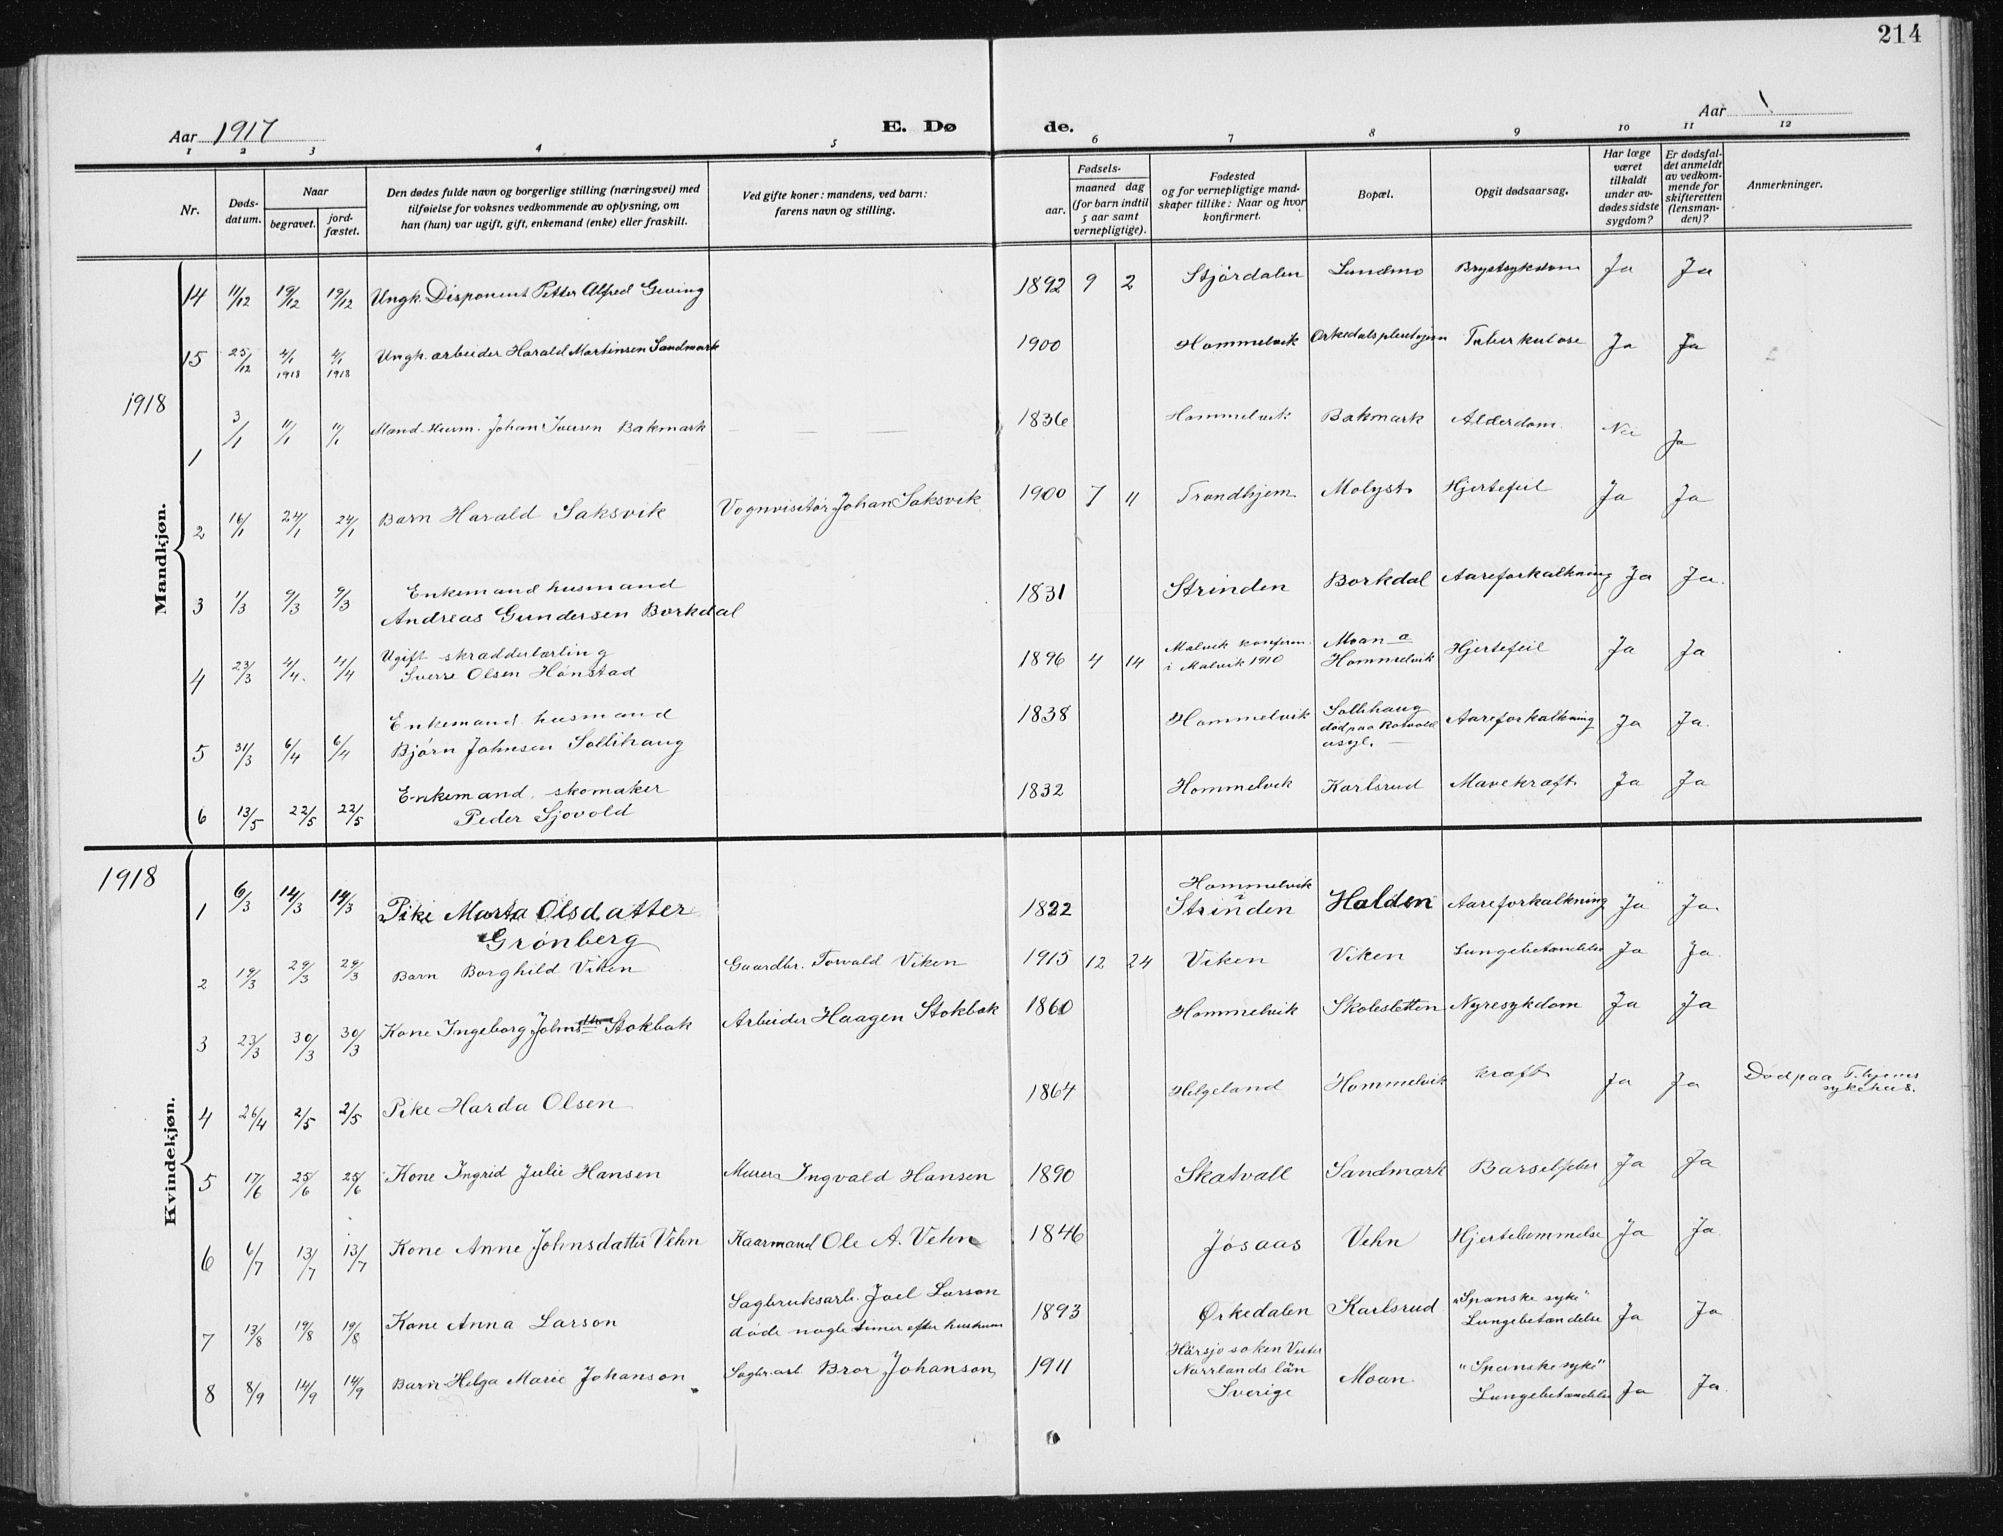 214
Aar 1917 E. Dø de. Aar
1 2 3 4 5 6 7 8 9 10 11 12
Nr. Døds-datum. Naar begravet. jord-fæstet. Den dødes fulde navn og borgerlige stilling (næringsvei) med tilføielse for voksnes vedkommende av oplysning, om han (hun) var ugift, gift, enkemand (enke) eller fraskilt. Ved gifte koner: mandens, ved barn: farens navn og stilling. Fødsels- aar. maaned dag (for barn indtil 5 aar samt vernepligtige). Fødested og for vernepligtige mand-skaper tillike: Naar og hvor konfirmert. Bopæl. Opgit dødsaarsag. Har læge været tilkaldt under av-dødes sidste sygdom? Er dødsfal-det anmeldt av vedkom-mende for skifteretten (lensman-den)? Anmerkninger.
Mandkjøn.
14 11/12 19/12 19/12 Ungk. Disponent Petter Alfred Geving 1892 9 2 Stjørdalen Lundmo Brystsykdom Ja Ja
15 25/12 4/1 1918 4/1 1918 Ungk. arbeider Harald Martinsen Sandmark 1900 Hommelvik Tuberkulose Ja Ja
1918
1 3/1 11/1 11/1 Mand. Husm. Johan Iversen Bakmark 1836 Hommelvik Bakmark Alderdom. Nei Ja
2 16/1 24/1 24/1 Barn Harald Saksvik Vognvisitør Johan Saksvik 1900 7 11 Trondhjem Molyst Hjertefeil Ja Ja
3 1/3 9/3 9/3 Enkemand husmand
Andreas Gundersen Borkdal 1831 Strinden Borkdal Aareforkalkning Ja Ja.
4 23/3 4/4. 4/4 Ugift skrædderlærling
Sverre Olsen Hønstad 1896 4 14 Malvik konferm. i Malvik 1910 Moan a Hommelvik Hjertefeil Ja Ja
5 31/3 6/4 6/4 Enkemand husmand
Bjørn Johnsen Sollihaug 1838 Hommelvik Sollihaug død paa Rotvold asyl. Aareforkalkning Ja Ja.
6 13/5 22/5 22/5 Enkemand. skomaker
Peder Sjovold 1832 Hommelvik Karlsrud Mavekræft Ja Ja
1918
Kvindekjøn.
1 6/3 14/3 14/3 Pike Marta Olsdatter
Grønberg 1822 Hommelvik i Strinden Halden Aareforkalkning Ja Ja.
2 19/3 29/3 29/3 Barn Borghild Viken Gaardbr. Torvald Viken 1915 12 24 Viken Viken Lungebetændelse Ja Ja.
3 23/3 30/3 30/3 Kone Ingeborg Johns Stokbak Arbeider Haagen Stokbak 1860 Hommelvik Skolesletten Nyresykdom Ja Ja
4 26/4 2/5 2/5 Pike Harda Olsen 1864 Helgeland Hommelvik kræft Ja Ja Død paa T.hjems sykehus.
5 17/6 25/6 25/6 Kone Ingrid Julie Hansen Murer Ingvald Hansen 1890 Skatvall Sandmark Barselfeber Ja Ja
6 6/7 13/7 13/7 Kone Anne Johnsdatter Vehn Kaarmand Ole A. Vehn 1846 Jøsaas Vehn Hjertelammelse Ja Ja.
7 13/8 19/8 19/8 Kone Anna Larson Sagbruksarb. Joel Larson
døde nogle timer efter 1893 Ørkedalen Karlsrud "Spanske syke" Lungebetændelse Ja Ja
8 8/9 14/9 14/9 Barn Helga Marie Johanson. Sagbr.arb. Bror Johanson, 1911 Norrlands län Sverige Moan. "Spanske syke" Lungebetændelse Ja Ja.